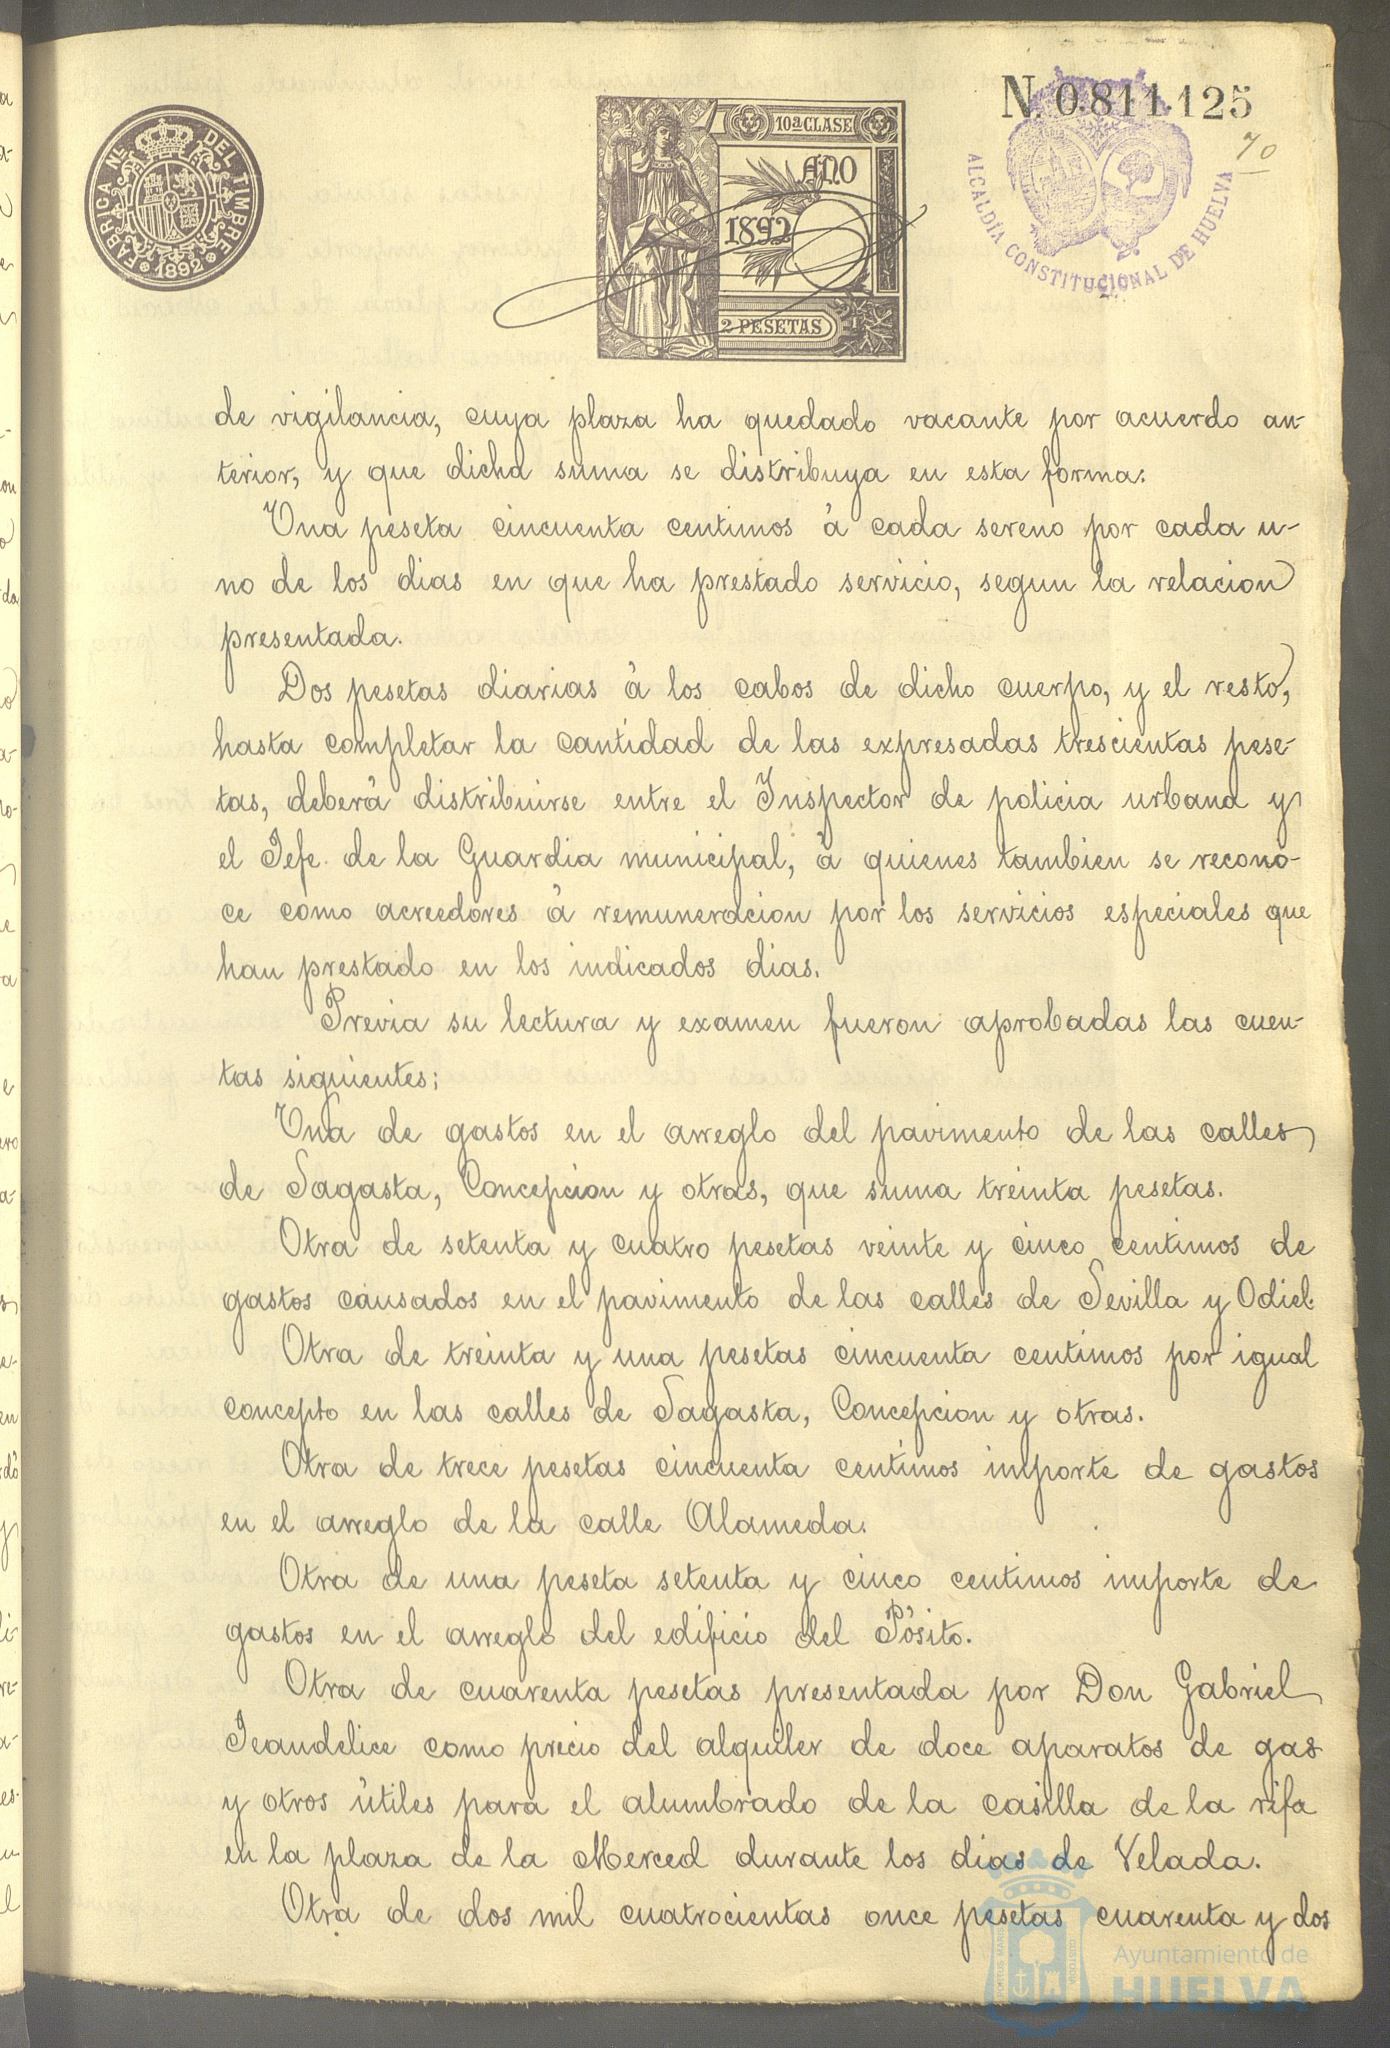 FABRICA NL. DEL TIMBRE
1892
10ª CLASE
AÑO
1892
2 PESETAS
N. 0.811.125
70
ALCALDÍA CONSTITUCIONAL DE HUELVA
de vigilancia, cuya plaza ha quedado vacante por acuerdo an-
terior, y que dicha suma se distribuya en esta forma:
Una peseta cincuenta centimos á cada sereno por cada u-
no de los dias en que ha prestado servicio, segun la relacion
presentada.
Dos pesetas diarias á los cabos de dicho cuerpo, y el resto,
hasta completar la cantidad de las expresadas trescientas pese-
tas, deberá distribuirse entre el Inspector de policia urbana y
el Jefe de la Guardia municipal, á quienes tambien se recono-
ce como acreedores á remuneracion por los servicios especiales que
han prestado en los indicados dias.
Previa su lectura y examen fueron aprobadas las cuen-
tas siguientes:
Una de gastos en el arreglo del pavimento de las calles
de Sagasta, Concepcion y otras, que suma treinta pesetas.
Otra de setenta y cuatro pesetas veinte y cinco centimos de
gastos causados en el pavimento de las calles de Sevilla y Odiel.
Otra de treinta y una pesetas cincuenta centimos por igual
concepto en las calles de Sagasta, Concepcion y otras.
Otra de trece pesetas cincuenta centimos importe de gastos
en el arreglo de la calle Alameda.
Otra de una peseta setenta y cinco centimos importe de
gastos en el arreglo del edificio del Pósito.
Otra de cuarenta pesetas presentada por Don Gabriel
Jeandelice como precio del alquiler de doce aparatos de gas
y otros útiles para el alumbrado de la casilla de la rifa
en la plaza de la Merced durante los dias de Velada.
Otra de dos mil cuatrocientas once pesetas cuarenta y dos
Ayuntamiento de
HUELVA